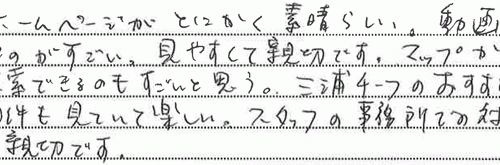 ームページがとにかく素晴らしい。動画
のがすごい。見やすくて親切です。マップか
索できるのもすごいと思う。三浦チーフのおすす
件も見ていて楽しい。スタッフの事務所での対
親切です。